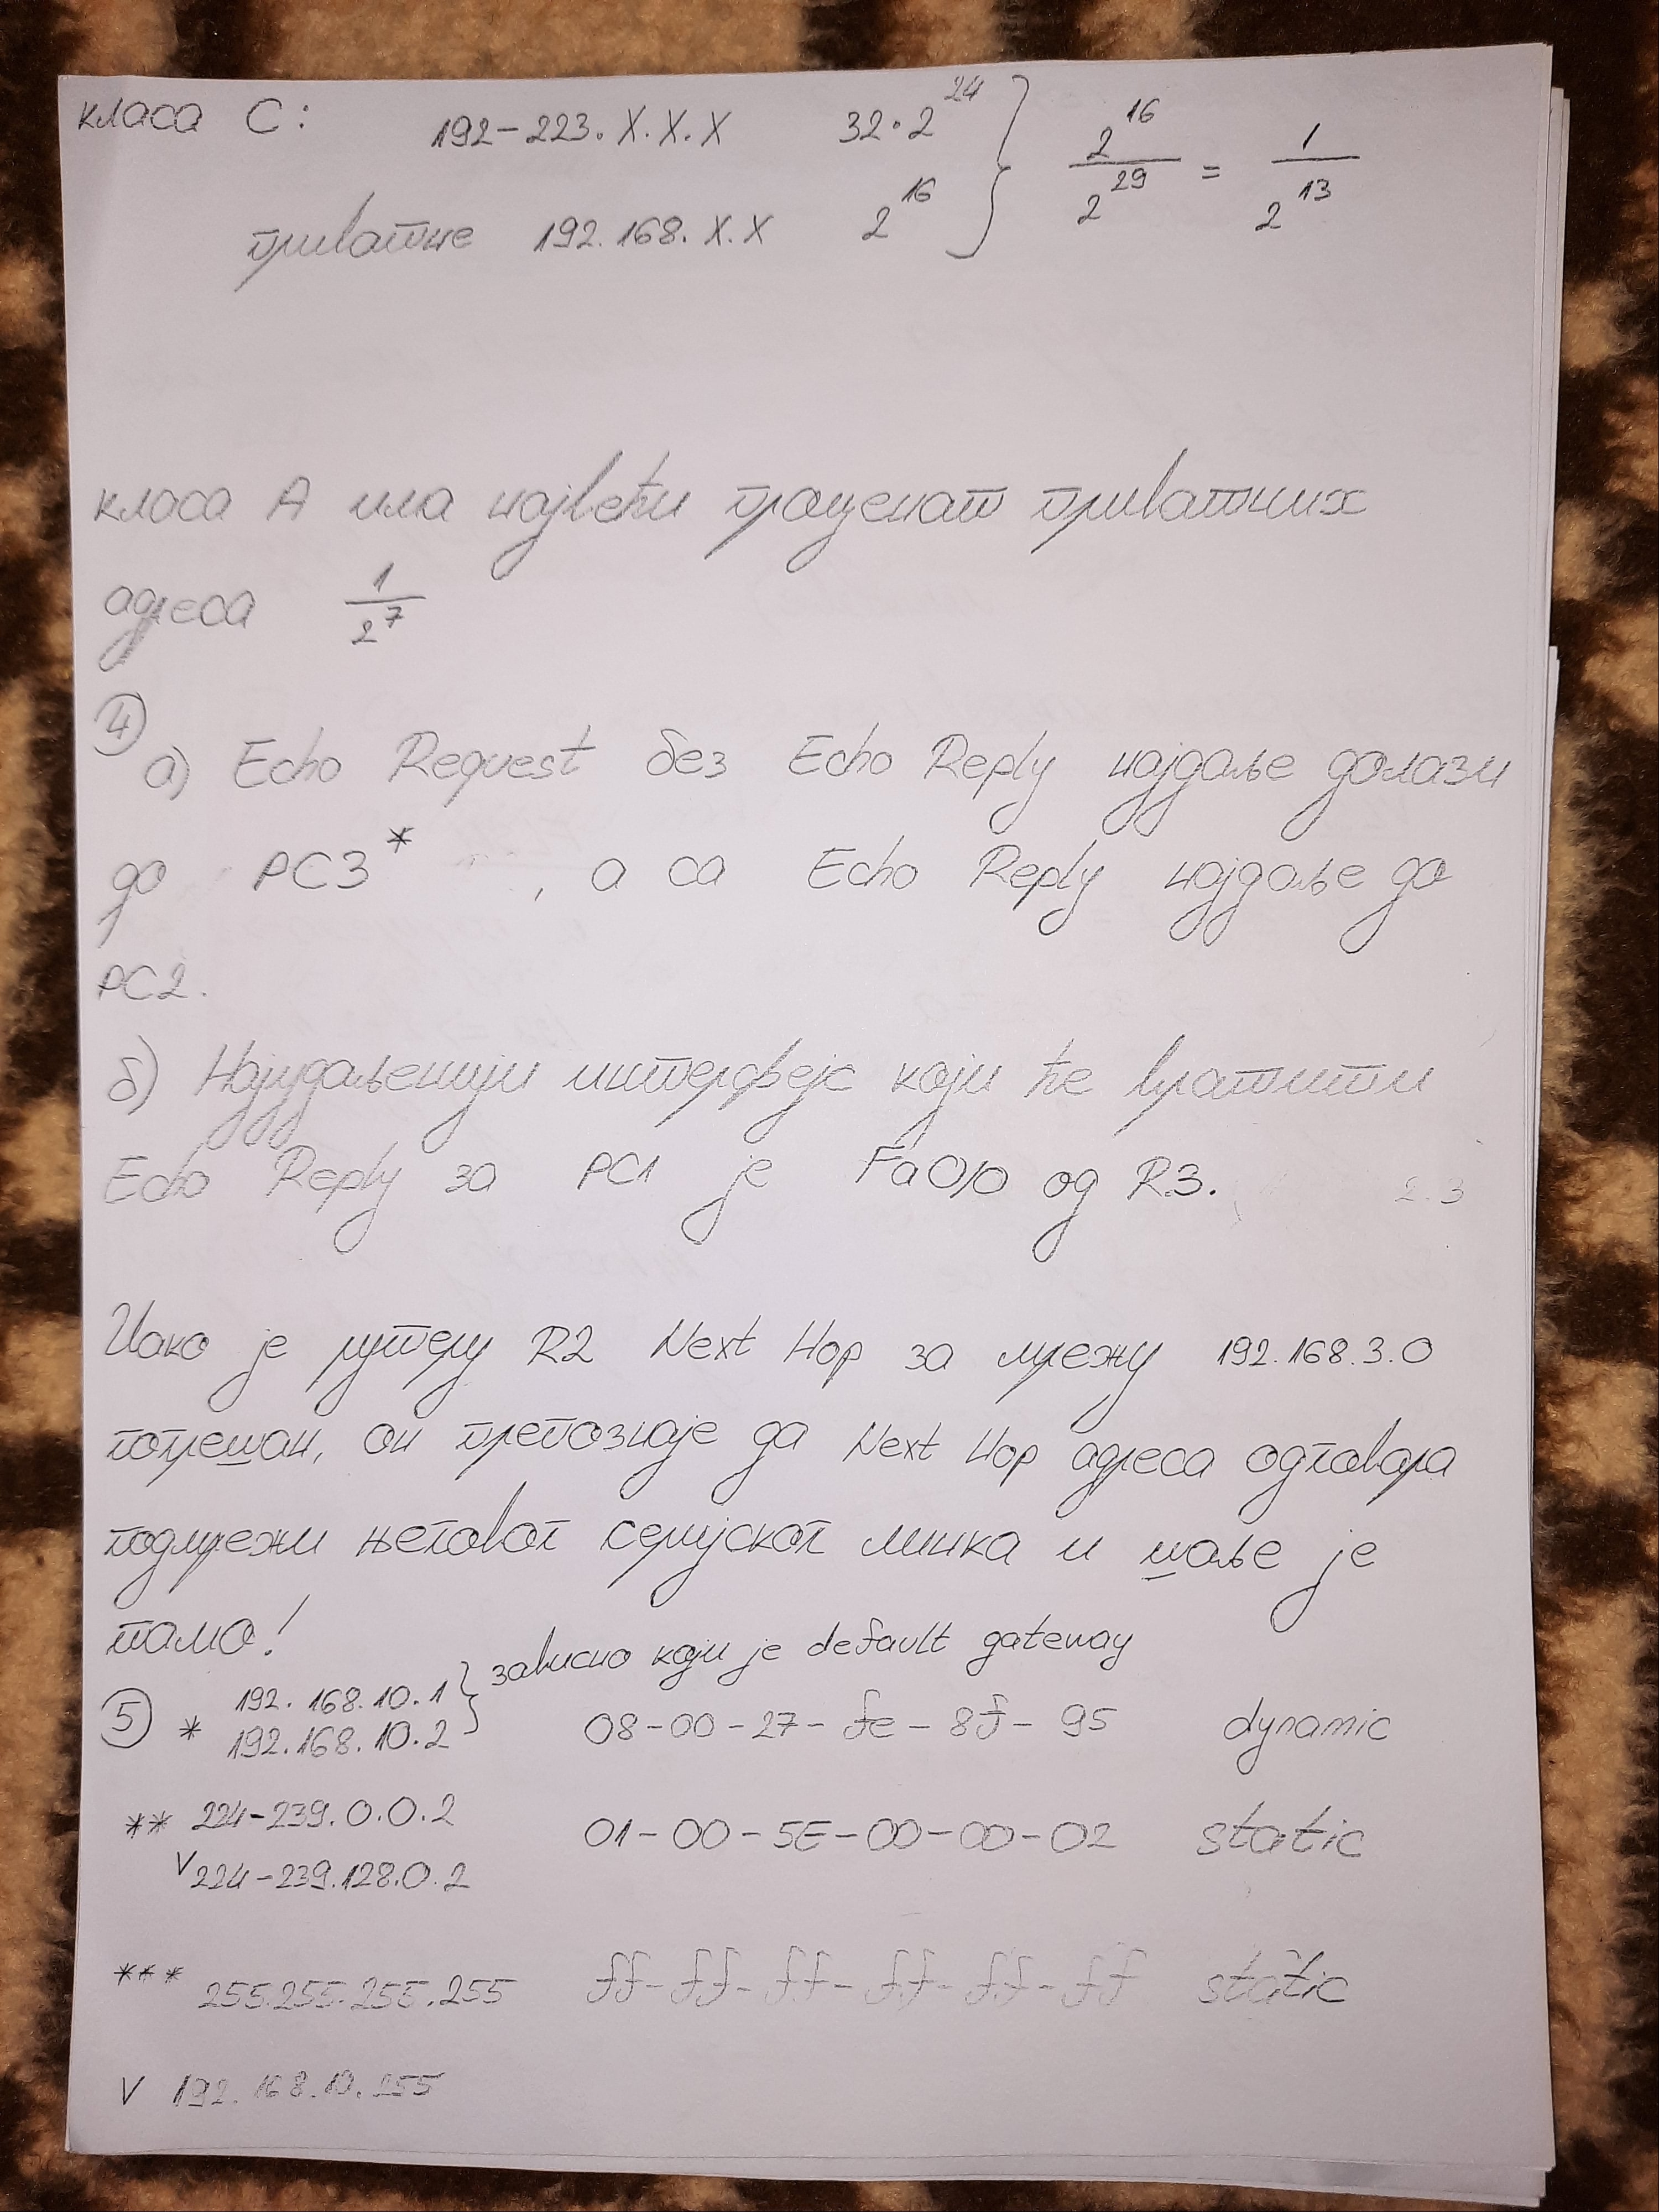 класа C: 192-223.X.X.X 32·2^24 } 2^16/2^29 = 1/2^13
приватне 192.168.X.X 2^16
класа А има највећи проценат приватних
адреса 1/2^7
④ а) Echo Request без Echo Reply најдаље долази
до PC3*, а са Echo Reply најдаље до
PC2.
б) Најудаљенији интерфејс који ће вратити
Echo Reply за PC1 је Fa0/0 од R3. 2.3
Иако је рутеру R2 Next Hop за мрежу 192.168.3.0
погрешан, он препознаје да Next Hop адреса одговара
подмрежи његовог серијског линка и шаље је
тамо!
⑤ * 192.168.10.1 } зависно који је default gateway
192.168.10.2 08-00-27-fe-8f-95 dynamic
** 224-239.0.0.2 01-00-5E-00-00-02 static
V 224-239.128.0.2
*** 255.255.255.255 ff-ff-ff-ff-ff-ff static
V 192.168.10.255